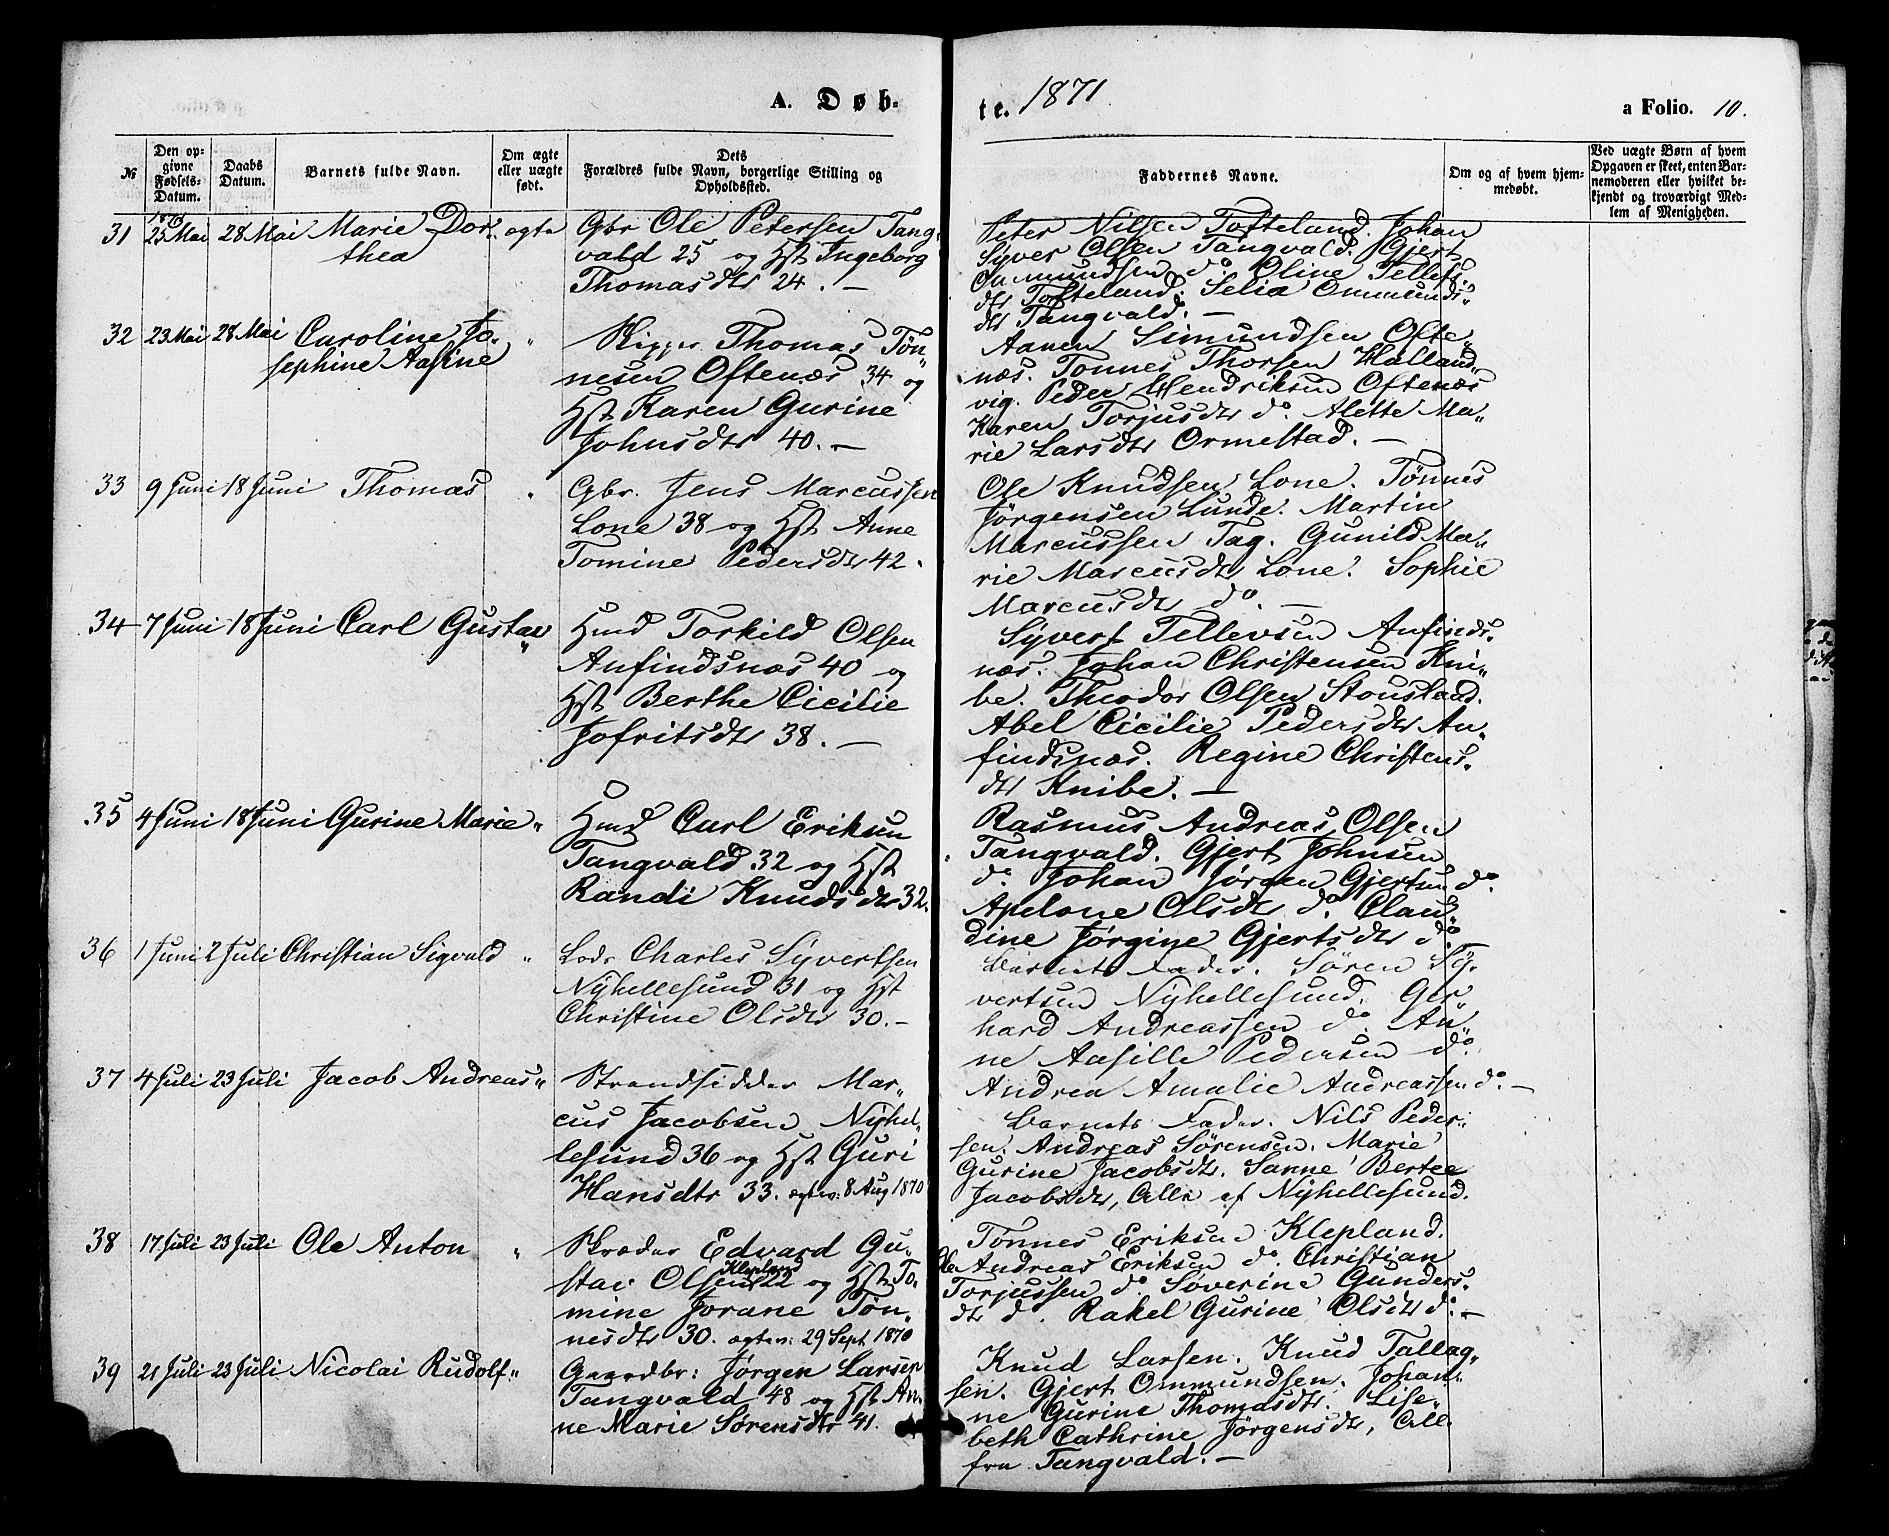 A. Døb-
te. 1871.
a Folio. 10.
№
Den op-
givne
Fødsels-
Datum.
Daabs
Datum.
Barnets fulde Navn.
Om ægte
eller uægte
født.
Dets
Forældres fulde Navn, borgerlige Stilling og
Opholdssted.
Faddernes Navne.
Om og af hvem hjem-
medøbt.
Ved uægte Børn af hvem
Opgaven er skeet, enten Bar-
nemoderen eller hvilket be-
kjendt og troværdigt Med-
lem af Menigheden.
31 25 Mai 28 Mai Marie Dor- ægte
thea
Gbr Ole Petersen Tang-
vald 25 og Hst Ingeborg
Thomasdtr 24. —
Peter Nilsen Tofteland. Johan
Syver Olsen Tangvald. Gjert
Ommundsen do. Oline Tellefs-
dtr Tofteland. Selia Ommunds-
dtr Tangvald. —
32 23 Mai 28 Mai Caroline Jo- "
sephine Aasine
Skipper Thomas Tøn-
nesen Oftenæs 34 og
Hst Karen Gurine
Johnsdtr 40. —
Aanen Simundsen Ofte-
næs. Tønnes Thorsen Halland-
vig. Peder Hendriksen Oftenæs
Karen Torjusdtr do. Alette Ma-
rie Larsdtr Ormestad. —
33 9 Juni 18 Juni Thomas "
Gbr. Jens Marcussen
Lone 38 og Hst Anne
Tomine Pedersdtr 42.
Ole Knudsen Lone. Tønnes
Jørgensen Lunde. Martin
Marcussen Tag. Gunild Ma-
rie Marcusdtr Lone. Sophie
Marcusdtr do. —
34 7 Juni 18 Juni Carl Gustav "
Hmd Torkild Olsen
Anfindsnæs 40 og
Hst Berthe Cicilie
Jofritsdtr 38. —
Syvert Tellevsen Anfinds-
næs. Johan Christensen Kni-
be. Theodor Olsen Stousland.
Abel Cicilie Pedersdtr An-
findsnæs. Regine Christens-
dtr Knibe. —
35 4 Juni 18 Juni Gurine Marie "
Hmd Carl Eriksen
Tangvald 32 og Hst
Randi Knudsdtr 32.
Rasmus Andreas Olsen
Tangvald. Gjert Johnsen
do. Johan Jørgen Gjertsen do.
Apelone Olsdtr do. Clau-
dine Jørgine Gjertsdtr do.
36 1 Juni 2 Juli Christian Sigvald "
Lods Charles Syvertsen
Nyhellesund 31 og Hst
Christine Olsdtr 30. —
Barnets Fader. Søren Sy-
vertsen Nyhellesund. Ger-
hard Andreassen do. An-
ne Aasille Pedersen do.
Andrea Amalie Andreassen do. —
37 4 Juli 23 Juli Jacob Andreas "
Strandsidder Mar-
cus Jacobsen Nyhel-
lesund 36 og Hst Guri
Hansdtr 33. ægtev: 8 Aug 1870
Barnets Fader. Nils Peder-
sen. Andreas Sørensen. Marie
Gurine Jacobsdtr. Sanne Bertee
Jacobsdtr, Alle af Nyhellesund.
38 17 Juli 23 Juli Ole Anton "
Skræder Edvard Gu-
stav Olsen Klepland 22 og Hst To-
mine Jorane Tøn-
nesdtr 30. ægtev: 29 Sept 1870
Tønnes Eriksen Klepland.
Ole Andreas Eriksen do. Christian
Torjussen do Søverine Gunders-
dtr do. Rakel Gurine Olsdtr do. —
39 21 Juli 23 Juli Nicolai Rudolf "
Gaardbr: Jørgen Larsen
Tangvald 48 og Hst An-
ne Marie Sørensdtr 41.
Knud Larsen. Knud Tallag-
sen. Gjert Ommundsen. Johan-
ne Gurine Thomasdtr. Lise-
beth Cathrine Jørgensdtr, Alle
fra Tangvald. —